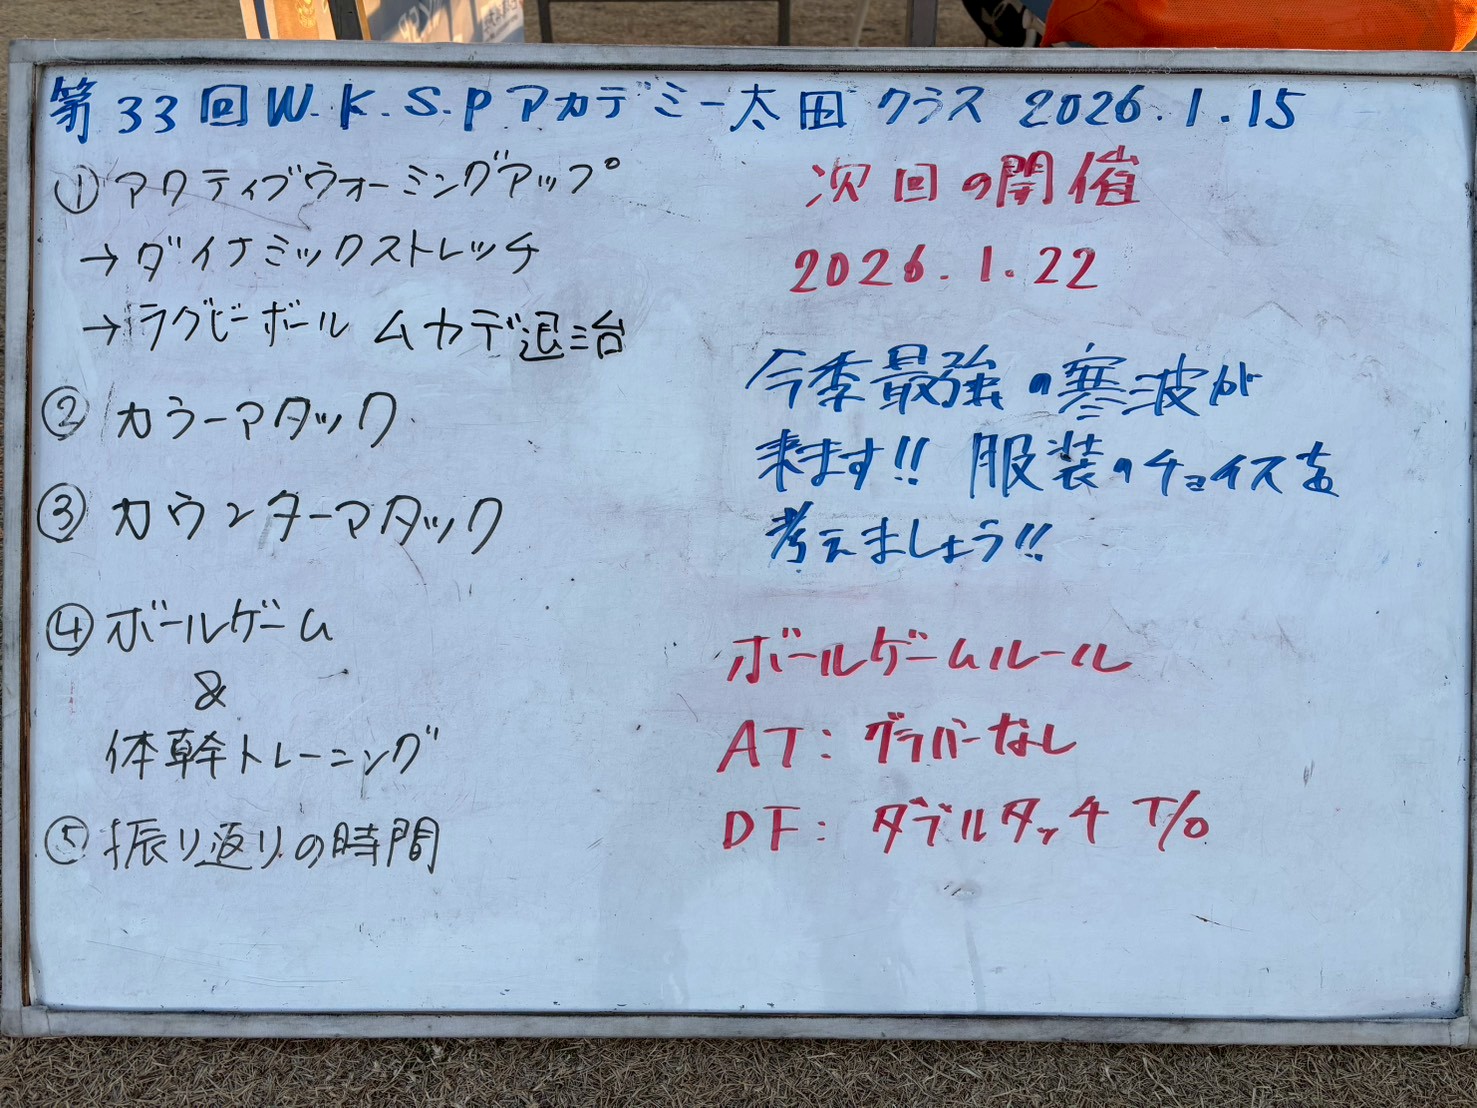 第33回W.K.S.Pアカデミー太田クラス 2026.1.15
①アクティブウォーミングアップ
→ダイナミックストレッチ
→ラグビーボール ムカデ退治
②カラーアタック
③カウンターアタック
④ボールゲーム
&
体幹トレーニング
⑤振り返りの時間
次回の開催
2026.1.22
今季最強の寒波が
来ます!! 服装のチョイスを
考えましょう!!
ボールゲームルール
AT:グラバーなし
DF:ダブルタッチ T/O